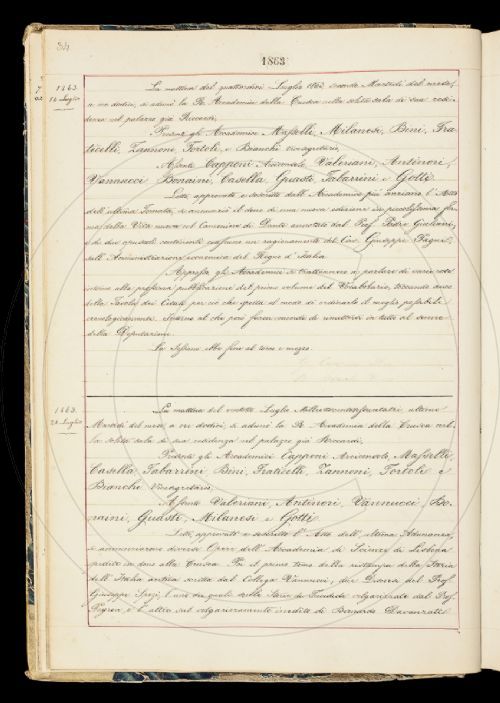 34
1863
1863.
14 Luglio
La mattina del quattordici Luglio 1863, secondo Martedì del mese,
a ore dodici, si adunò la R. Accademia della Crusca nella solita sala di sua resi-
denza nel palazzo già Riccardi.
Presenti gli Accademici Masselli, Milanesi, Bini, Fra-
ticelli, Zannoni, Tortoli e Bianchi Vicesegretario,
Assenti Capponi Arciconsolo, Valeriani, Antinori,
Vannucci Bonaini, Casella, Guasti, Tabarrini e Gotti.
Letto, approvato e sottoscritto dall' Accademico più anziano l' Atto
dell' ultima Tornata, si annunziò il dono di una nuova edizione in piccolissima for-
ma della Vita nuova col Comento di Dante annotata dal Prof. Pietro Giuliani,
e di due opuscoli contenenti ciascuno un ragionamento del Cav. Giuseppe
sull' Amministrazione economica del Regno d' Italia.
Appresso gli Accademici si trattennero a parlare di varie cose
intorno alla prossima pubblicazione del primo volume del Vocabolario, toccando anco
della Tavola dei Citati per ciò che spetta al modo di ordinarla il meglio possibile
cronologicamente,
della Deputazione.
La Sessione ebbe fine al tocco e mezzo.
1863.
28 Luglio
La mattina del ventotto Luglio Milleottocentosessantatre, ultimo
Martedì del mese, a ore dodici, si adunò la R. Accademia della Crusca nel-
la solita sala di sua residenza nel palazzo già Riccardi.
Presenti gli Accademici Capponi Arciconsolo, Masselli,
Casella, Tabarrini Bini, Fraticelli, Zannoni, Tortoli e
Bianchi Vicesegretario.
Assenti Valeriani, Antinori, Vannucci Bo-
naini, Guasti, Milanesi e Gotti.
Letto, approvato e sottoscritto l' Atto dell' ultima Adunanza,
si annunziarono diverse Opere dell' Accademia di Scienze di Lisbona
spedite in dono alla Crusca. Poi il primo tomo della ristampa della Storia
dell' Italia antica scritta dal Collega Vannucci, due Discorsi del Prof.
Giuseppe Spezi, l' uno dei quali sulle Storie di Tucidide volgarizzate dal Prof.
e l' altro sul volgarizzamento inedito di Bernardo Davanzati